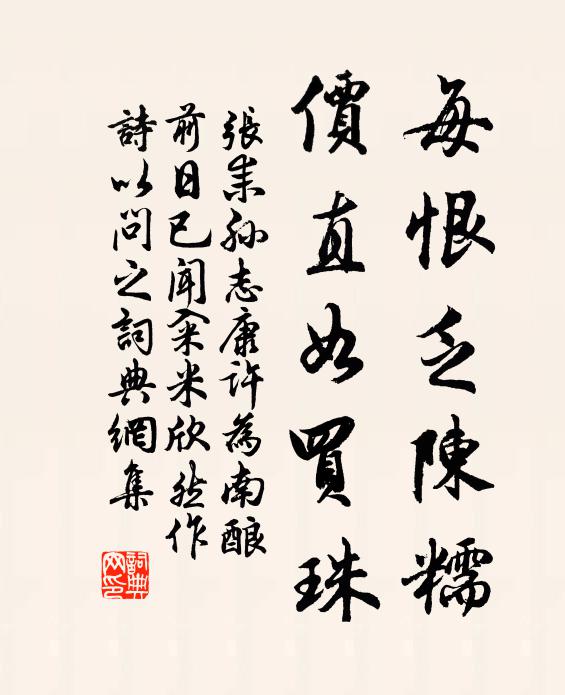 每恨乏陳糯
價直如買珠
張耒孙志康許為南酿
前日已聞籴米欣然作
詩以問之詞典網集
詞典网印